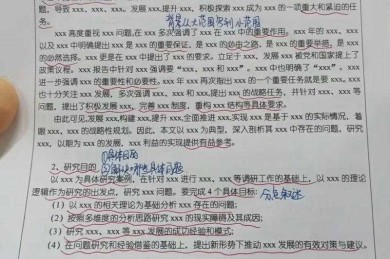 题, 导致 xxx、xxx。发展 xxx,提升 xxx, 积极探索 xxx 成为 xxx 的一项重大和紧迫的任
务。
背景从大范围到小范围
xxx 高度重视 xxx 问题,在 xxx 多次强调了 xxx 在 xxx 中的重要作用。xxx 年的 xxx、xxx
以及 xxx 中明确提出 xxx 是 xxx 的重要保证, xxx 是 xxx 的必由之路, xxx 是 xxx 的重要举措, 是 xxx
的必然选择。xxx 更是在 xxx 中提出了 xxx 的要求。立足于 xxx、xxx 发展被党和国家提上了
政策议程。xxx 报告中针对 xxx 强调要 "xxx"。xxx 中也明确了 "xxx"。xxx
进一步强调 xxx 的重要性和必要性。xxx 年 xxx 再次指出 xxx 的一个重要任务就是要 xxx。xxx
也十分关注 xxx 发展, 多次强调 xxx、xxx 和 xxx,提出 xxx 的战略任务, 并十针对 xxx、xxx 等
问题, 提出了积极发展 xxx, 完善 xxx 制度, 重构 xxx 结构等具体要求。
由此可见,发展 xxx,构建 xxx,提升 xxx,全面推进 xxx,实现 xxx 是基于 xxx 的实际情况, 着
眼 xxx、xxx 的战略性规划。因此, 本文以 xxx 为典型, 深入剖析其 xxx 中存在的问题, 研究
xxx, 以期为 xxx 的发展、xxx 利益的实现提供有益参考。
①具体目的
2、研究目的
以 xxx 为具体研究案例, 在针对 xxx 进行 xxx、xxx等调研工作的基础上, 以 xxx 的理论
逻辑作为研究的出发点, 研究 xxx 问题。要完成 4 个具体目标: 分点叙述
(1) 以 xxx 的相关理论为基础分析 xxx 存在的问题;
(2) 按照多维度的分析思路研究 xxx 的现实障碍及其成因;
(3) 研究 xxx、xxx 等 xxx 发展的成功经验和模式;
(4) 在问题研究和经验借鉴的基础上, 提出新形势下推动 xxx 发展的有效对策与建议。